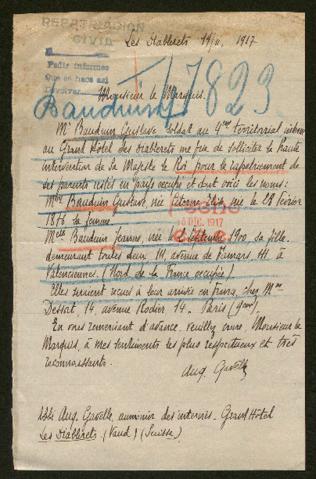 REPATRIACION
CIVIL
Les Diablerets 19/11, 1917
Pedir informes
Que se hace así
Devolver
Monsieur le Marquis.
Bauduin
17823
Mr Bauduin Gustave soldat au 4me territorial interné
au Grand Hôtel des Diablerets me prie de solliciter la haute
intervention de Sa Majesté le Roi pour le rapatriement de
ses parents restés en pays occupé et dont voici les noms:
Mme Bauduin Gustave, née le 28 février
1876 sa femme.
10 DIC. 1917
Melle Bauduin Jeanne, née 1900, sa fille.
demeurant toutes deux 111, avenue de Famars, 111 à
Valenciennes. (Nord de la France occupée).
Elles seraient reçues à leur arrivée en France, chez Mme
Dessat, 14 avenue Rodier 14. Paris (9me)
En vous remerciant d'avance, veuillez croire, Monsieur le
Marquis, à mes sentiments les plus respectueux et très
reconnaissants.
Aug.
Abbé Aug. aumônier des internés. Grand Hôtel
Les Diablerets. (Vaud) (Suisse)